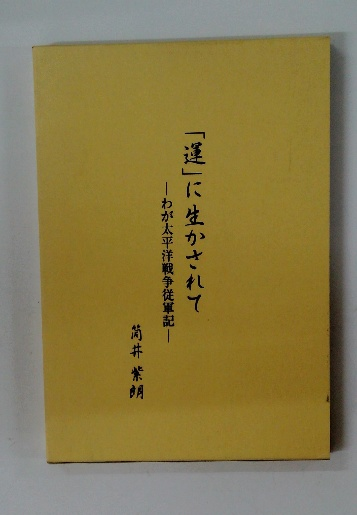 「運」に生かされて
―わが太平洋戦争従軍記―
筒井紫朗